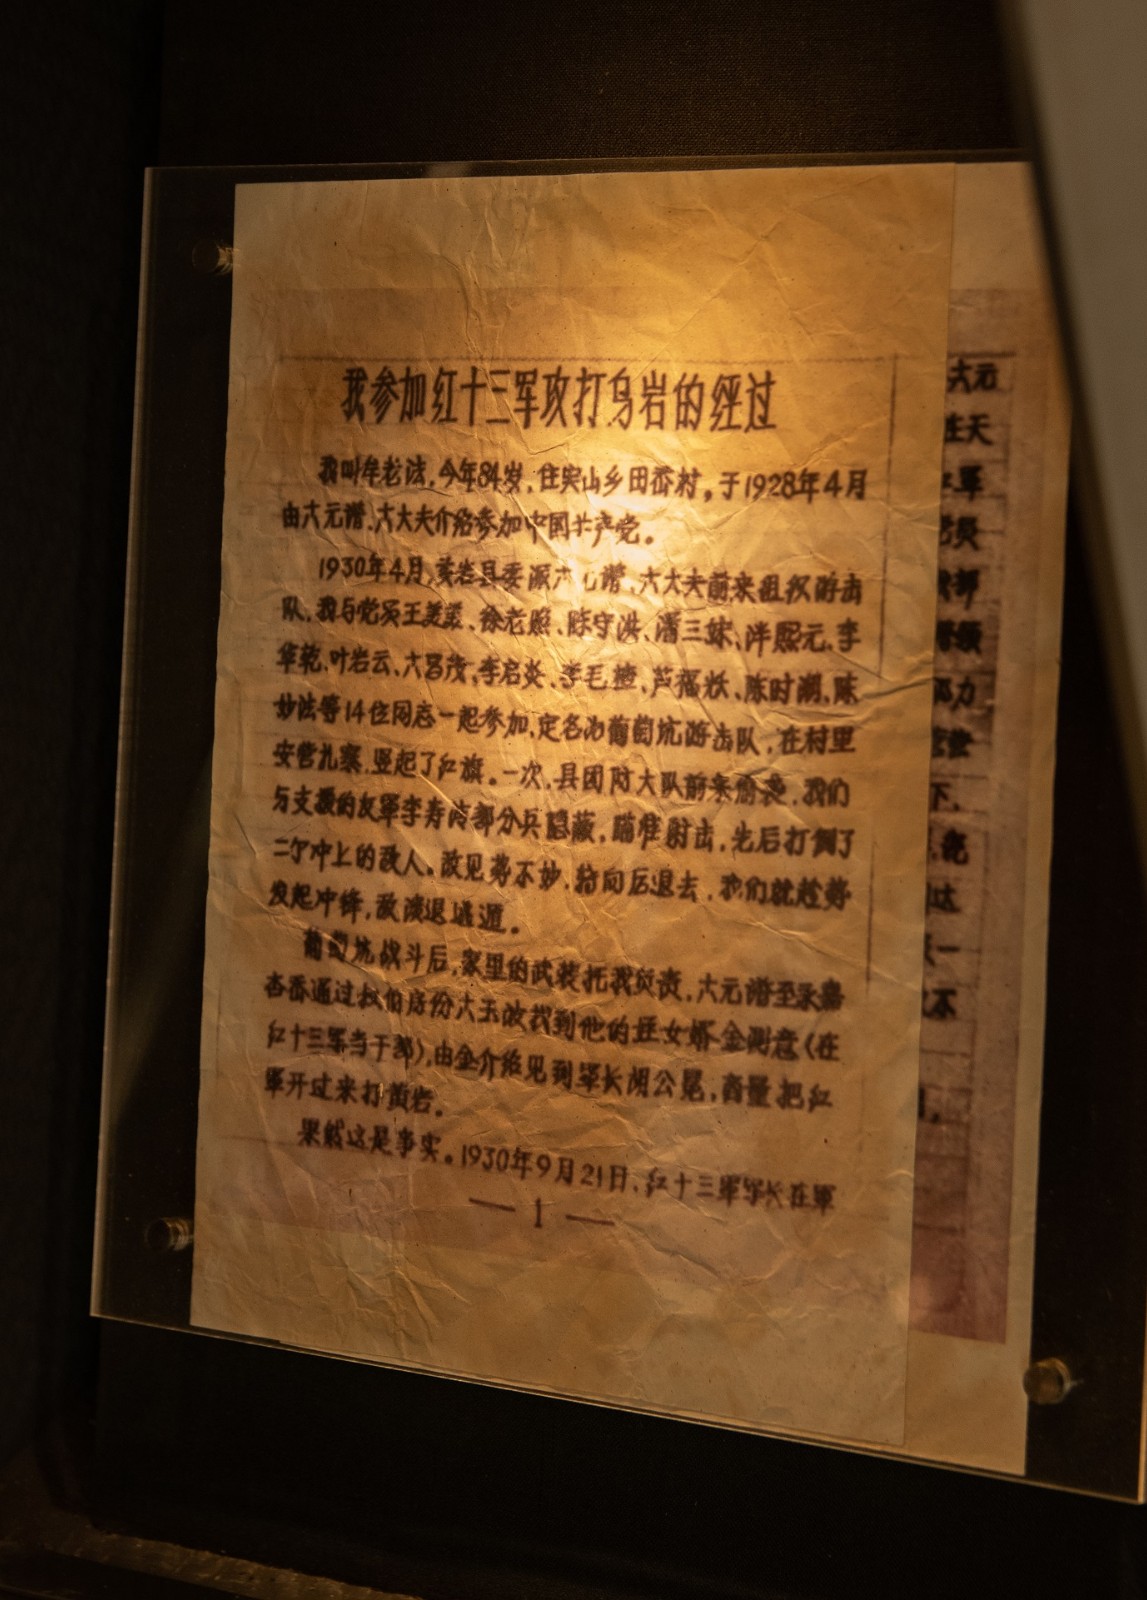 我参加红十三军攻打乌岩的经过
我叫牟老法,今年84岁,住突山乡田岙村,于1928年4月
由六元谱、六大夫介绍参加中国共产党。
1930年4月,黄岩县委派六元谱、六大夫前来组织游击
队,我与党员王美、徐老照、陈守洪、潘三妹、泮熙元、李
华乾、叶岩云、六昌茂、李启炎、李毛、芦福、陈时潮、陈
妙法等14位同志一起参加,定名为葡萄坑游击队,在村里
安营扎寨,竖起了红旗。一次,县团防大队前来偷袭,我们
与支援的友军李寿部分兵隐蔽,瞄准射击,先后打倒了
二个冲上的敌人。敌见势不妙,转向后退去,我们就趁势
发起冲锋,敌溃退逃遁。
葡萄坑战斗后,家里的武装托我负责,六元谱至永嘉
杏岙通过叔伯房份六玉波找到他的侄女婿金测意(在
红十三军当干部),由金介绍见到军长胡公冕,商量把红
军开过来打黄岩。
果然这是事实。1930年9月21日,红十三军军长在军
— 1 —
六元
天
軍
部
力
下,
达
一
不